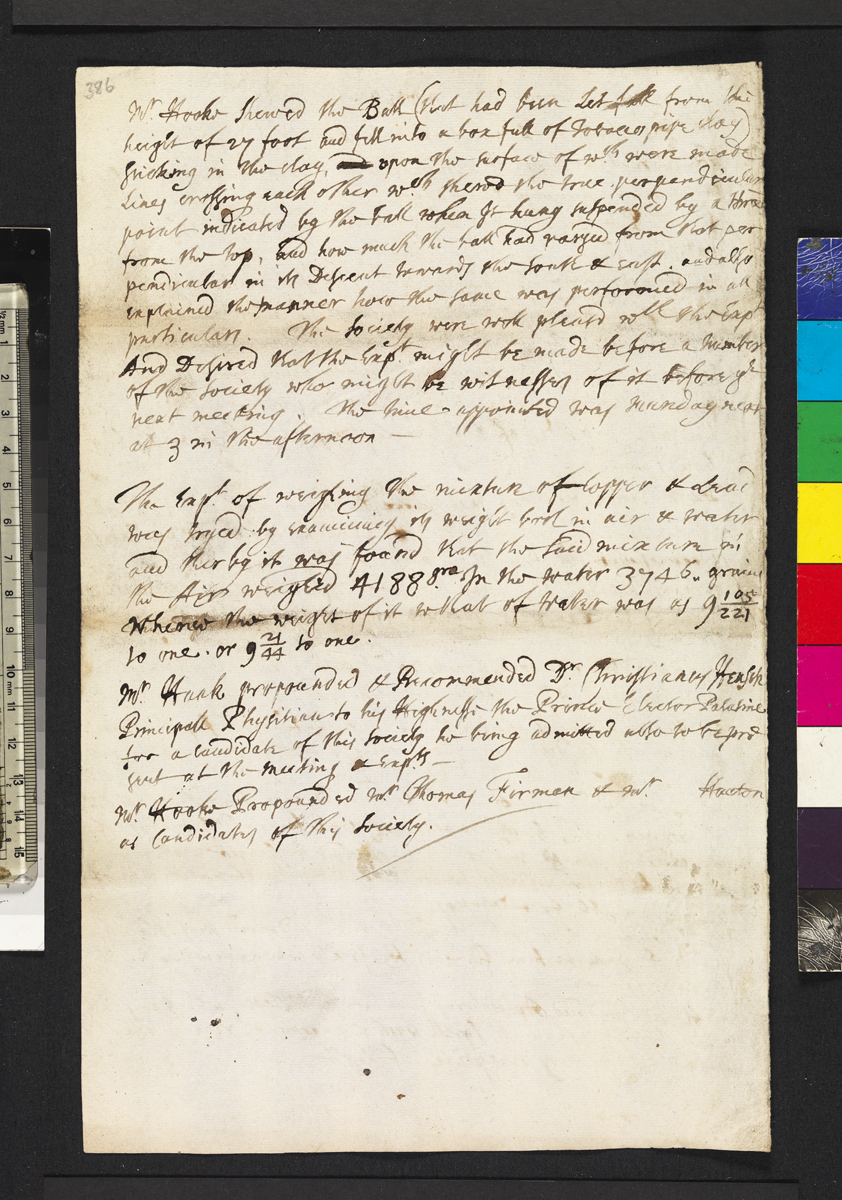 386
Mr. Hooke shewed the Ball (that had been Let fall from the
height of 27 foot and fell into a box full of Tobacco pipe clay)
sticking in the clay, upon the surface of wch were made
Lines crossing each other wch shewd the true perpendicular
point indicated by the ball when It hung suspended by a thred
from the top, and how much the ball had varyed from that per
pendicular in its Descent towards the South & East. and also
explained the manner how the same was performed in all
particulars. The Society were well pleasd wth the Expt
And Desired that the Expt. might be made before a number
of the Society who might be witnesses of it before ye
next meeting. The time appointed was munday next
at 3 in the afternoon —
The Expt. of weighing the mixture of Copper & Lead
was tryed by examining its weight both in air & water
and therby it was found that the said mixture in
the Air weighed 4188 gra In the water 3746 graines
Whence the weight of it to that of water was as 9 105/221
to one. or 9 21/44 to one.
Mr. Haak propounded & Recommended Dr. Christianus Hensch
Principall Physitian to his Highnesse the Prince Elector Palatine
for a candidate of this Society he being admitted also to be pre
sent at the meeting & Expts —
Mr. Hooke Propounded Mr. Thomas Firmen & Mr. Houton
as Candidates of this Society.
1/2 mm 1
2
3
4
5
6
7
8
9
10 mm
11
12
13
14
15